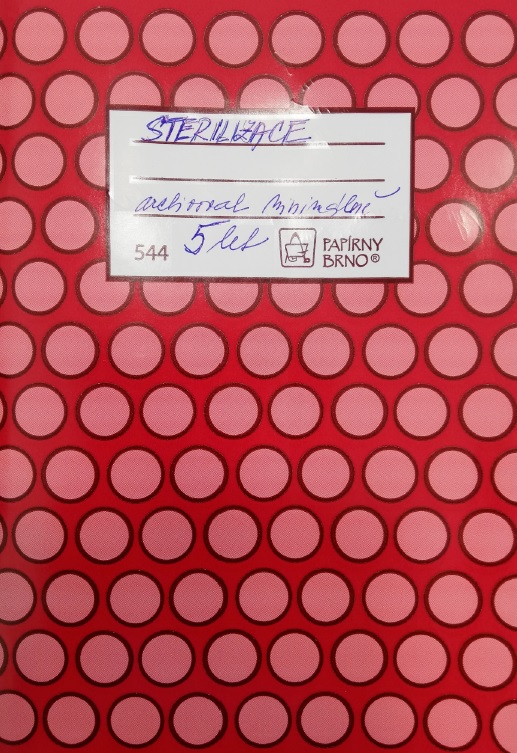 STERILIZACE
archivovat minimálně
5 let
544
PAPÍRNY
BRNO®